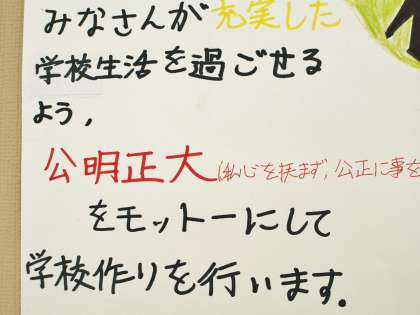 みなさんが充実した
学校生活を過ごせる
よう,
公明正大(私心を挟まず,公正に事を
をモットーにして
学校作りを行います.